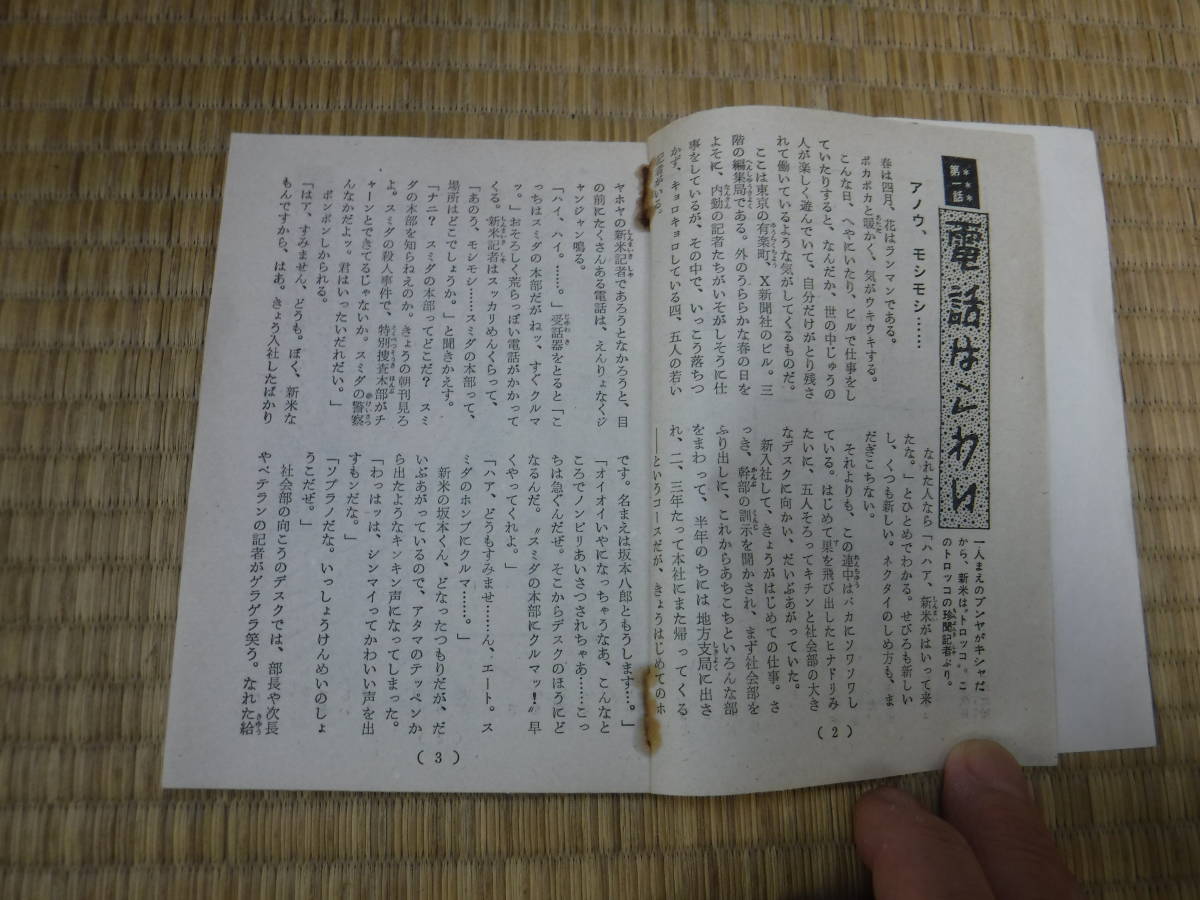 第一話
電話はこわい
一人まえのブンヤがキシャだ
から、新米は〝トロッコ〟。こ
のトロッコの珍聞記者ぶり。
アノウ、モシモシ……
春は四月、花はランマンである。
ポカポカと暖かく、気がウキウキする。
こんな日、へやにいたり、ビルで仕事をし
ていたりすると、なんだか、世の中じゅうの
人が楽しく遊んでいて、自分だけがとり残さ
れて働いているような気がしてくるものだ。
ここは東京の有楽町、X新聞社のビル。三
階の編集局である。外のうららかな春の日を
よそに、内勤の記者たちがいそがしそうに仕
事をしているが、その中で、いっこう落ちつ
かず、キョロキョロしている四、五人の若い
記者がいる。
なれた人なら「ハハア、新米がはいって来
たな。」とひとめでわかる。せびろも新しい
し、くつも新しい。ネクタイのしめ方も、ま
だぎこちない。
それよりも、この連中はバカにソワソワし
ている。はじめて巣を飛び出したヒナドリみ
たいに、五人そろってキチンと社会部の大き
なデスクに向かい、だいぶあがっていた。
新入社して、きょうがはじめての仕事。さ
っき、幹部の訓示を聞かされ、まず社会部を
ふり出しに、これからあちこちといろんな部
をまわって、半年のちには地方支局に出さ
れ、二、三年たって本社にまた帰ってくる
――というコースだが、きょうはじめてのホ
(2)
ヤホヤの新米記者であろうとなかろうと、目
の前にたくさんある電話は、えんりょなくジ
ャンジャン鳴る。
「ハイ、ハイ。……。」受話器をとると「こ
っちはスミダの本部だがねッ、すぐクルマ
ッ。」おそろしく荒らっぽい電話がかかって
くる。新米記者はスッカリめんくらって、
「あのう、モシモシ……スミダの本部って、
場所はどこでしょうか。」と聞きかえす。
「ナニ? スミダの本部ってどこだ? スミ
ダの本部を知らねえのか。きょうの朝刊見ろ
よ。スミダの殺人事件で、特別捜査本部がチ
ャーンとできてるじゃないか。スミダの警察
んなかだよッ。君はいったいだれだい。」
ポンポンしかられる。
「はァ、すみません、どうも。ぼく、新米な
もんですから、はあ。きょう入社したばかり
です。名まえは坂本八郎ともうします…。」
「オイオイいやになっちゃうなあ、こんなと
ころでノンビリあいさつされちゃあ……こっ
ちは急ぐんだぜ。そこからデスクのほうにど
なるんだ。〝スミダの本部にクルマッ!〟早
くやってくれよ。」
「ハア、どうもすみませ……ん、エート。ス
ミダのホンブにクルマ……。」
新米の坂本くん、どなったつもりだが、だ
いぶあがっているので、アタマのテッペンか
ら出たようなキンキン声になってしまった。
「わっはッは、シンマイってかわいい声を出
すもンだな。」
「ソプラノだな。いっしょうけんめいのしょ
うこだぜ。」
社会部の向こうのデスクでは、部長や次長
やベテランの記者がゲラゲラ笑う。なれた給
(3)